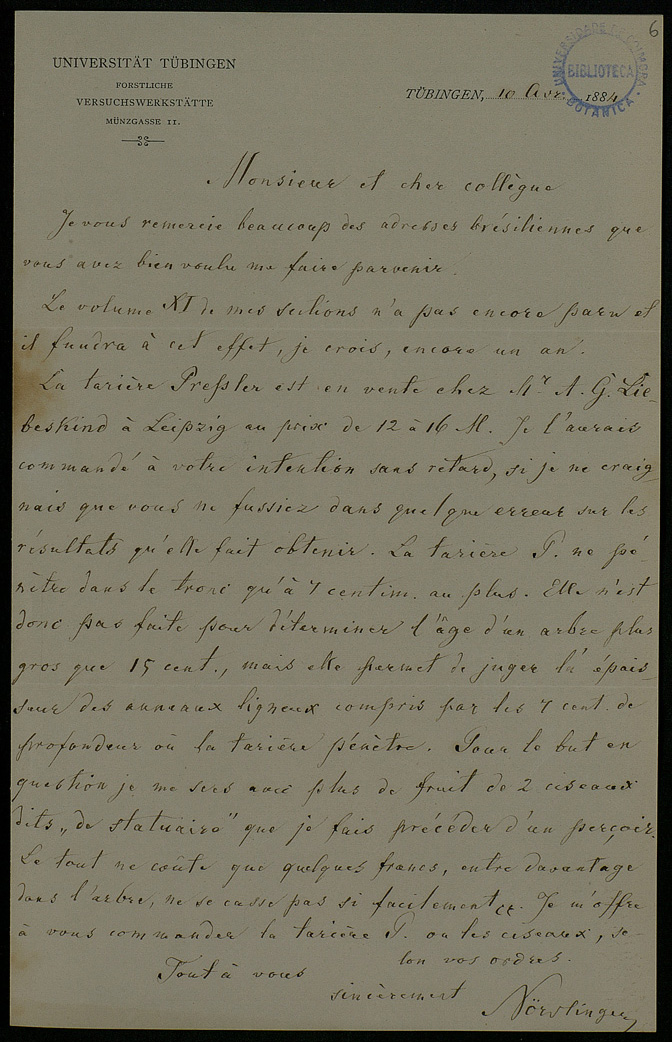 6
UNIVERSITÄT TÜBINGEN
FORSTLICHE
VERSUCHSWERKSTÄTTE
MÜNZGASSE 11.
TÜBINGEN, 10 Avr. 1884
UNIVERSIDADE DE COIMBRA
BIBLIOTECA
BOTANICA
Monsieur et cher collègue
Je vous remercie beaucoup des adresses brésiliennes que
vous avez bien voulu me faire parvenir.
Le volume XI de mes sections n'a pas encore paru et
il faudra à cet effet, je crois, encore un an.
La tarière Pressler est en vente chez Mr. A. G. Lie-
beskind à Leipzig au prix de 12 à 16 M. Je l'aurais
commandé à votre intention sans retard, si je ne craig-
nais que vous ne fussiez dans quelque erreur sur les
résultats qu'elle fait obtenir. La tarière P. ne pé-
nètre dans le tronc qu'à 7 centim. au plus. Elle n'est
donc pas faite pour déterminer l'âge d'un arbre plus
gros que 15 cent., mais elle permet de juger la épais-
seur des anneaux ligneux compris par les 7 cent. de
profondeur où la tarière pénètre. Pour le but en
question je me sers avec plus de fruit de 2 ciseaux
dits „de statuaire" que je fais précéder d'un perçoir.
Le tout ne coûte que quelques francs, entre davantage
dans l'arbre, ne se casse pas si facilement. Je m'offre
à vous commander la tarière P. ou les ciseaux, se-
lon vos ordres.
Tout à vous
sincèrement
Nördlinger